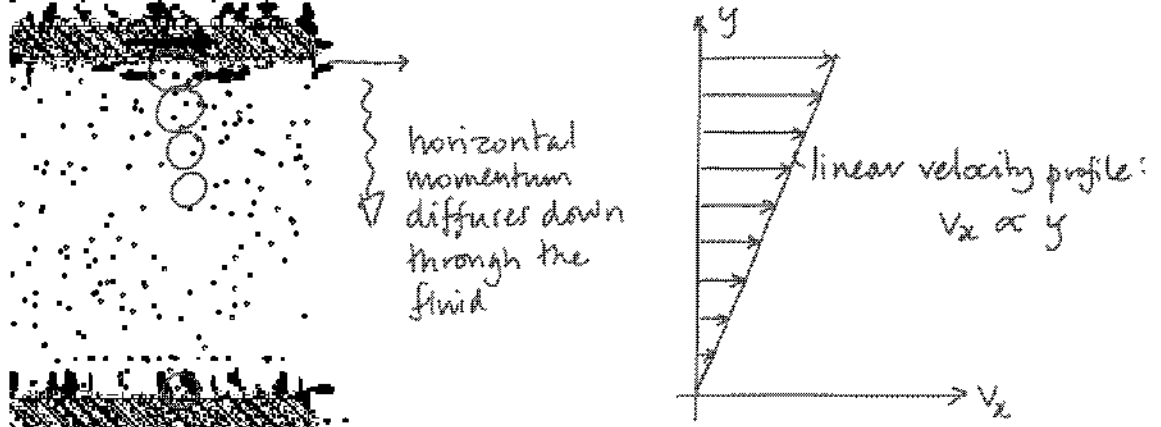 y
horizontal
momentum
diffuses down
through the
fluid
linear velocity profile:
vₓ ∝ y
vₓ